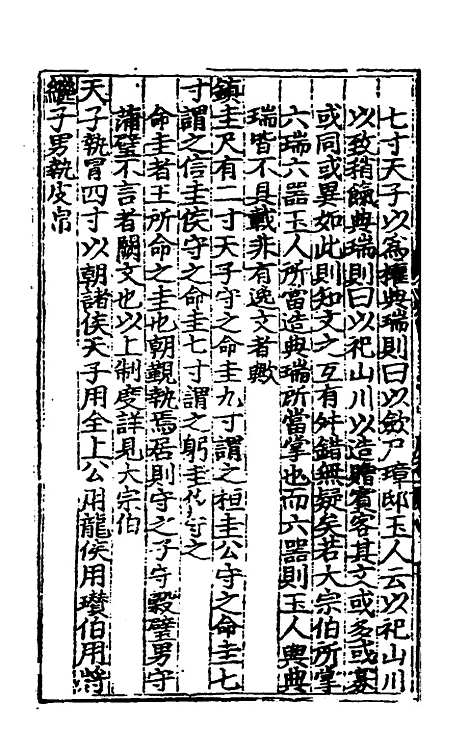 七寸天子以爲權典瑞則曰以斂尸璋邸玉人云以祀山川
以致稍餼典瑞則曰以祀山川以造贈賓客其文或多或寡
或同或異如此則知文之互有舛錯無疑矣若大宗伯所掌
六瑞六器玉人所當造典瑞所當掌也而六器則玉人與典
瑞皆不具載非有逸文者歟
鎮圭尺有二寸天子守之命圭九寸謂之桓圭公守之命圭七
寸謂之信圭侯守之命圭七寸謂之躬圭伯守之
命圭者王所命之圭也朝覲執焉居則守之子守穀璧男守
蒲璧不言者闕文也以上制度詳見大宗伯
天子執冒四寸以朝諸侯天子用全上公用龍侯用瓚伯用將
繼子男執皮帛